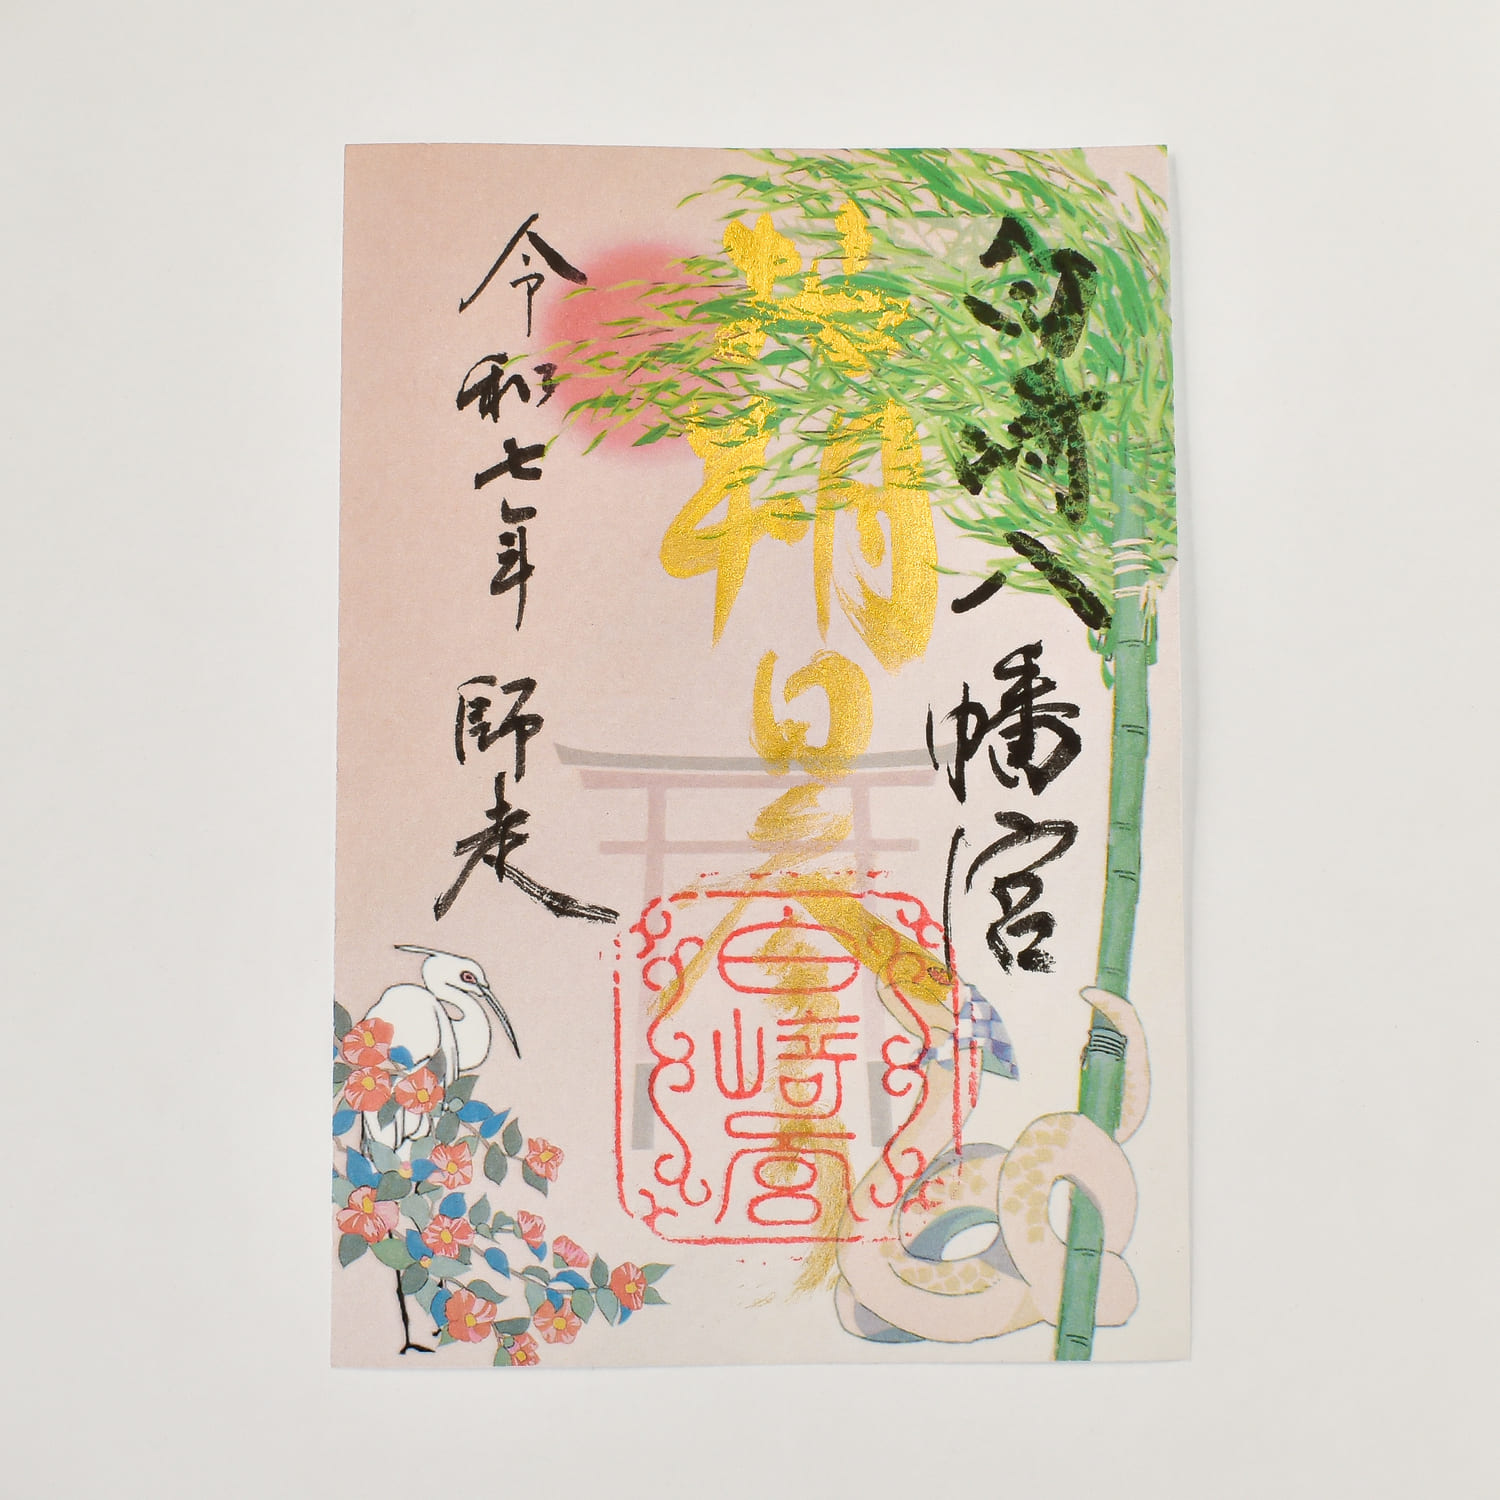 白崎八幡宮
日
白
崎
宮
令和七年 師走